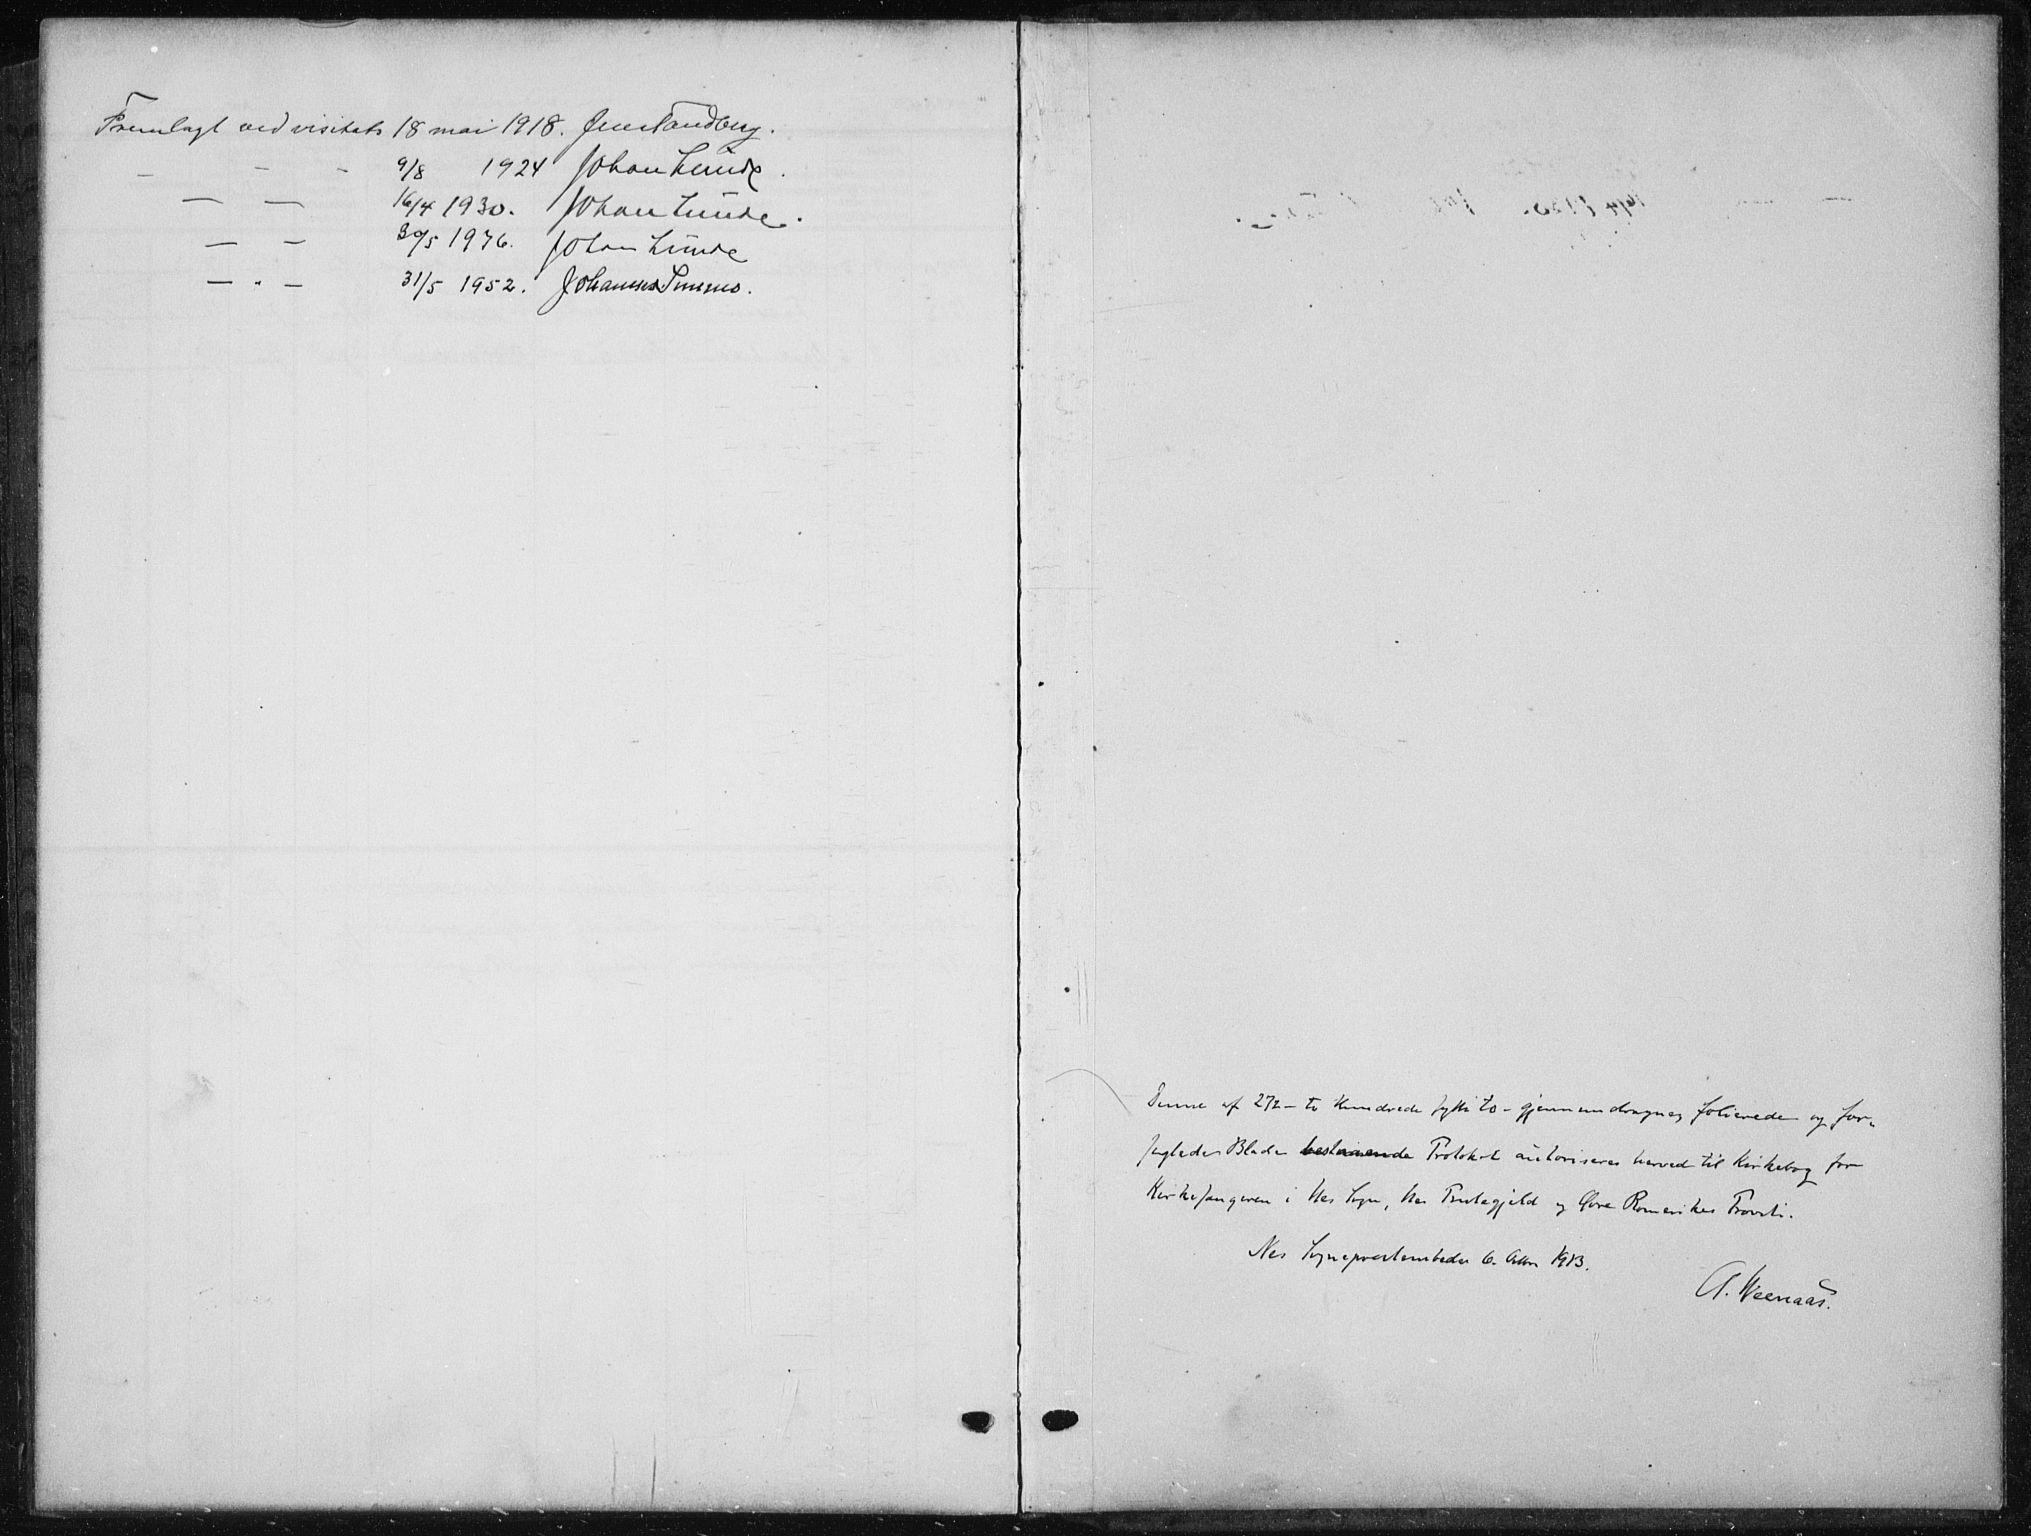 Fremlagt ved visitats 18 mai 1918. Jens Tandberg.
– – – 9/8 1924 Johan Lunde.
— — 16/4 1930. Johan Lunde.
— — 30/5 1936. Johan Lunde
— " — 31/5 1952. Johannes Smemo.
Denne af 272 – to Hundrede sytti to – gjennemdragne, folierede og for-
seglede Blade bestaaende Protokol autoriseres herved til Kirkebog for
Kirkesangeren i Nes Sogn, Nes Prestegjeld og Øvre Romerikes Provsti.
Nes Sogneprestembede 6. 1913.
A. Weenaas.